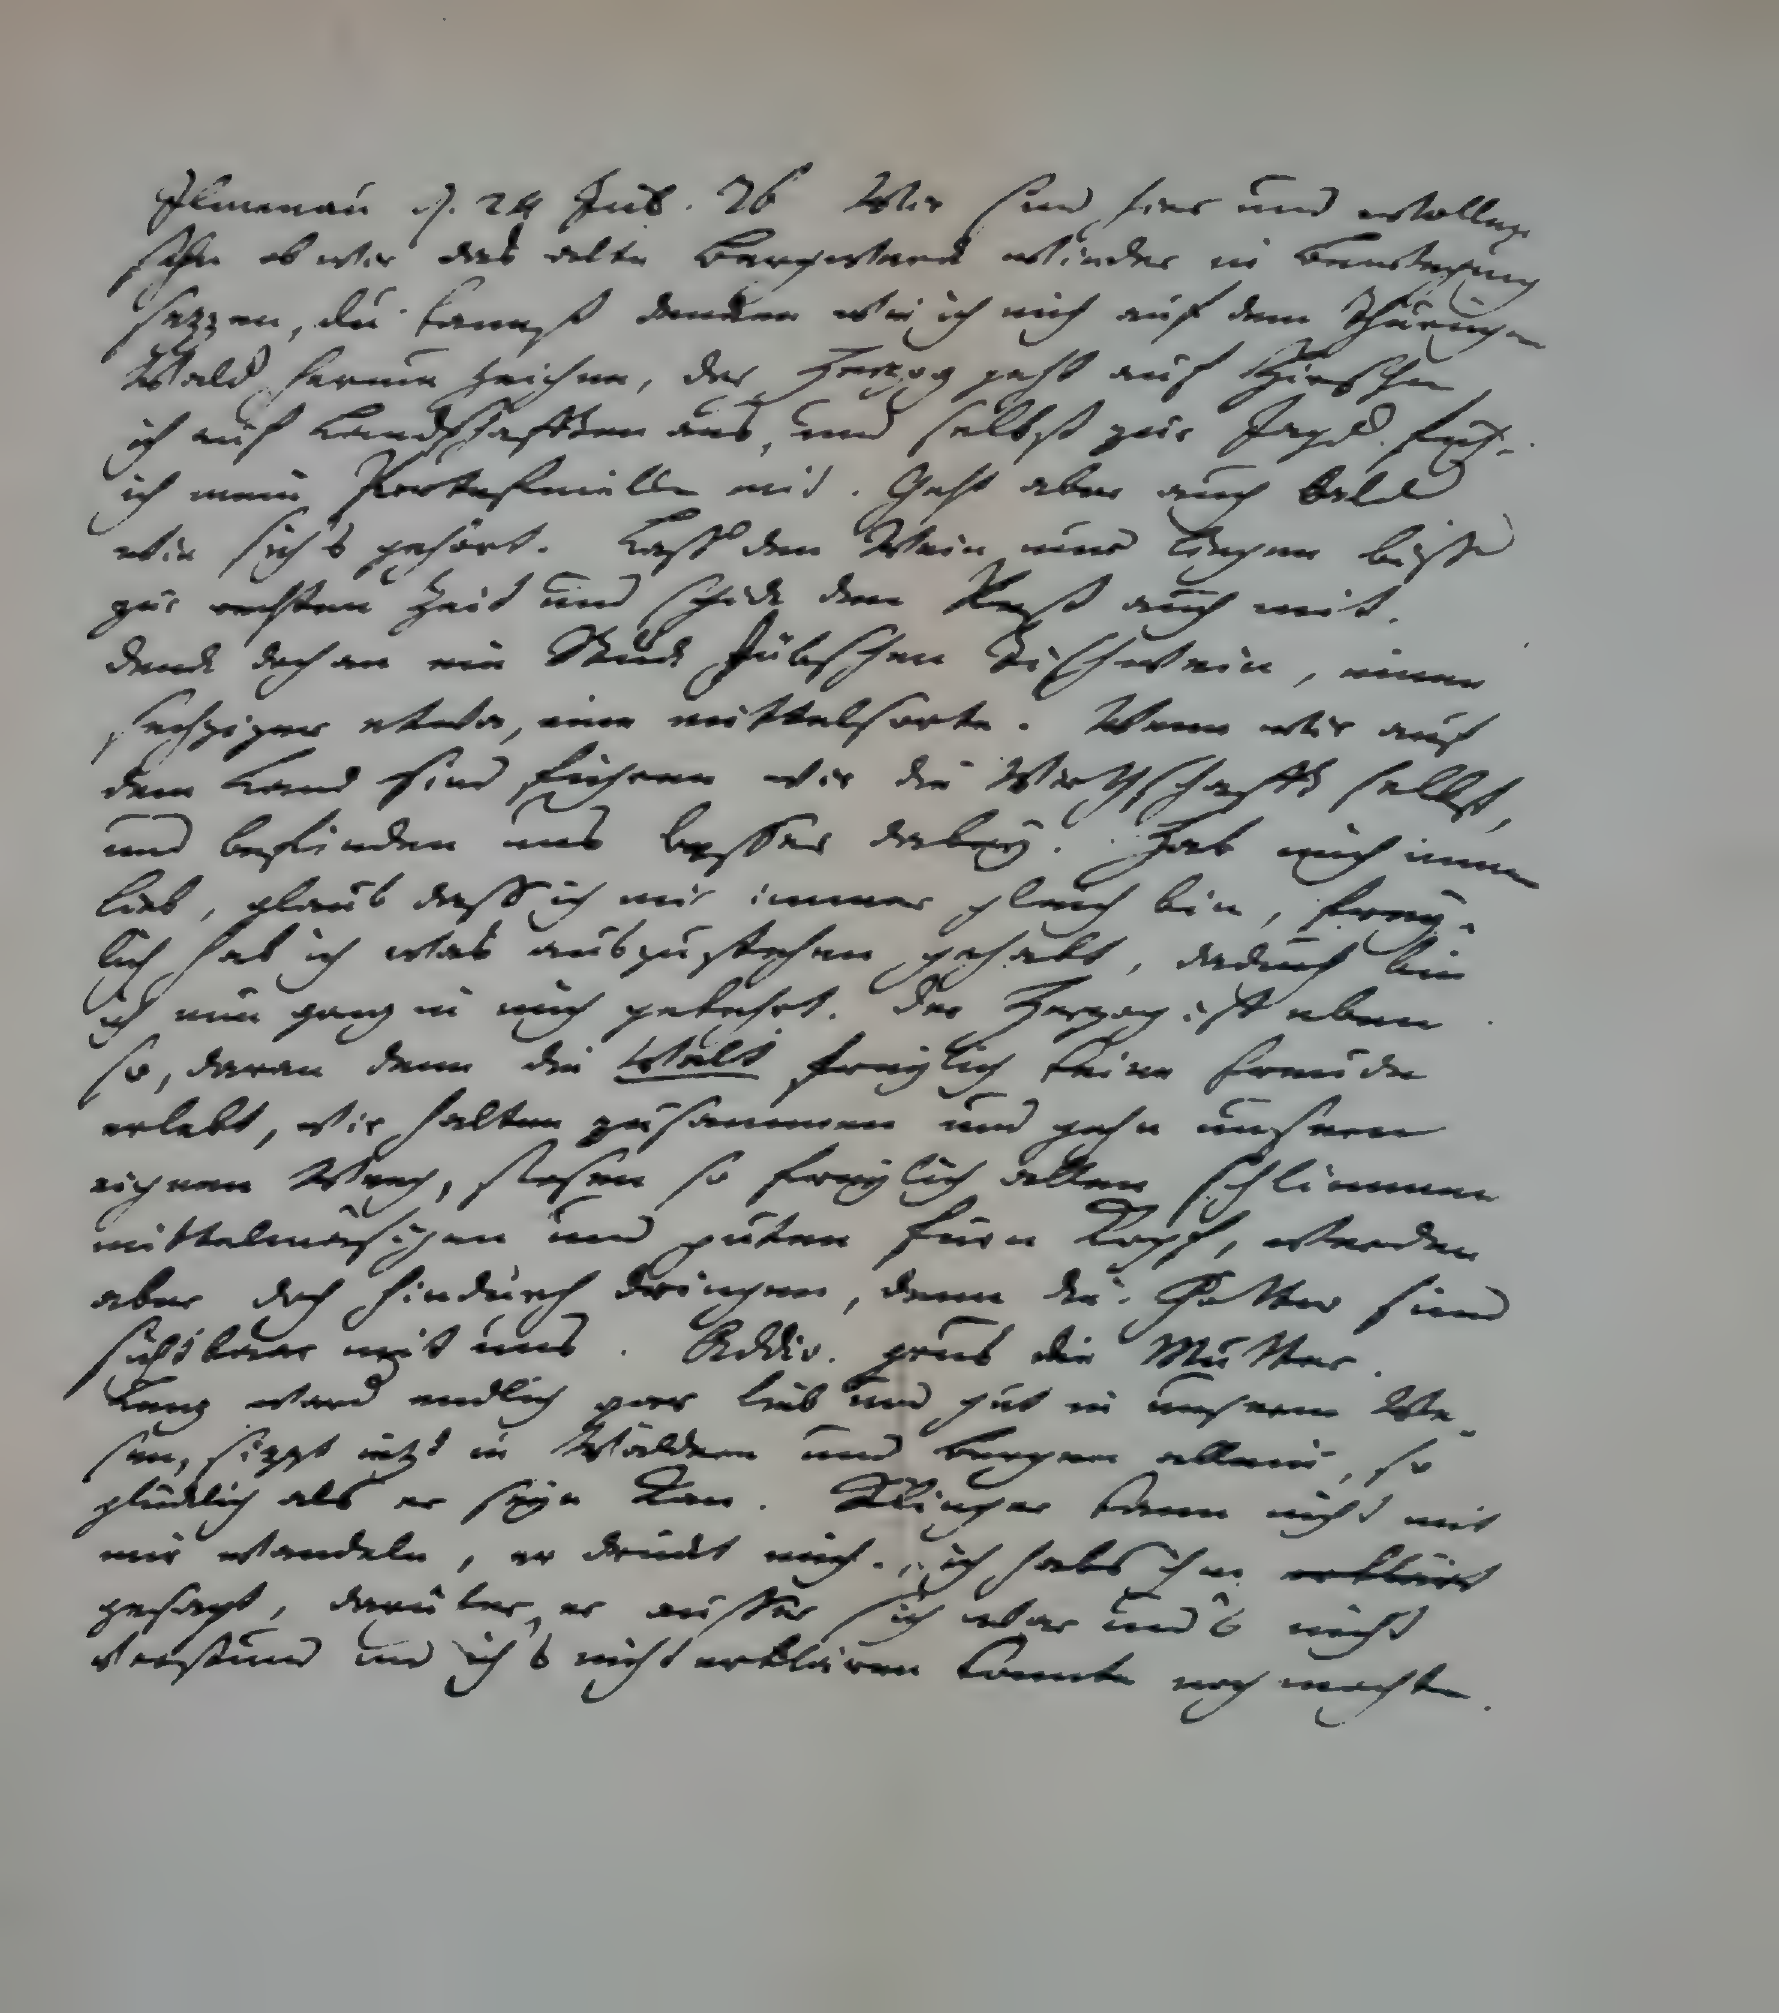 Ilmenau d. 24 Jul. 76 Wir sind hier und wollen
sehn ob wir das alte Bergwerck wieder in Bewegung
sezzen, du kannst dencken wie ich mich auf dem Thüringer
Wald herum zeichne, der Herzog geht auf Hirsche
ich auf Landschafften aus, und selbst zur Jagd führ
ich mein Portefeuille mit. Geht aber auch bald
wie sich's gehört. Lass den Wein nur liegen biss
zur rechten Zeit und schick den Rest auch mit.
denck doch an ein Stück hübschen Tischwein, einen
sechziger etwa, eine mittelsorte. Wenn wir auf
dem Land sind führen wir die Wirthschafft selbst,
und befinden uns besser dabey. Hab mich immer
lieb, glaub dass ich mir immer gleich bin, frey-
lich hab ich was auszustehen gehabt, dadurch bin
ich nun ganz in mich gekehrt. der Herzog ist eben
so, daran denn die Welt freylich keine Freude
erlebt, wir halten zusammen und gehn unsern
eignen Weeg, stosen so freylich allen schlimmen
mittelmäsigen und guten fürn Kopf, werden
aber doch hindurch dringen, denn die Götter sind
sichtbaar mit uns. Addio. grüs die Mutter.
Lenz ward endlich gar lieb und gut in unserm We-
sen, sizzt ietzt in Wäldern und Bergen allein, so
glücklich als er seyn kan. Klinger kann nicht mit
mir wandeln, er drückt mich. ich habs ihm erklärt
gesagt, darüber er ausser sich war und's nicht
verstund und ich's nicht erklären konnte noch mochte.